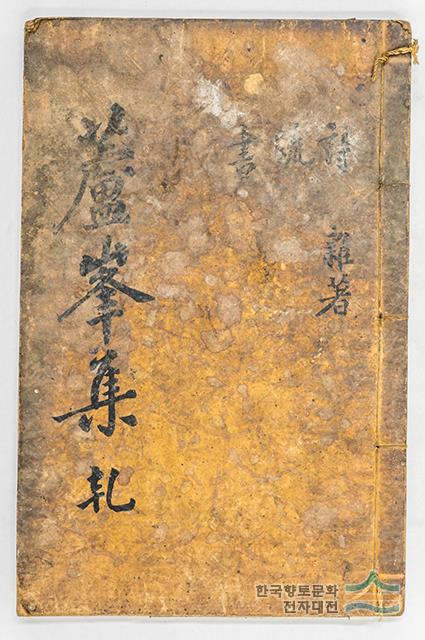 詩 雜著
疏
書
蘆峯集 乾
한국향토문화
전자대전